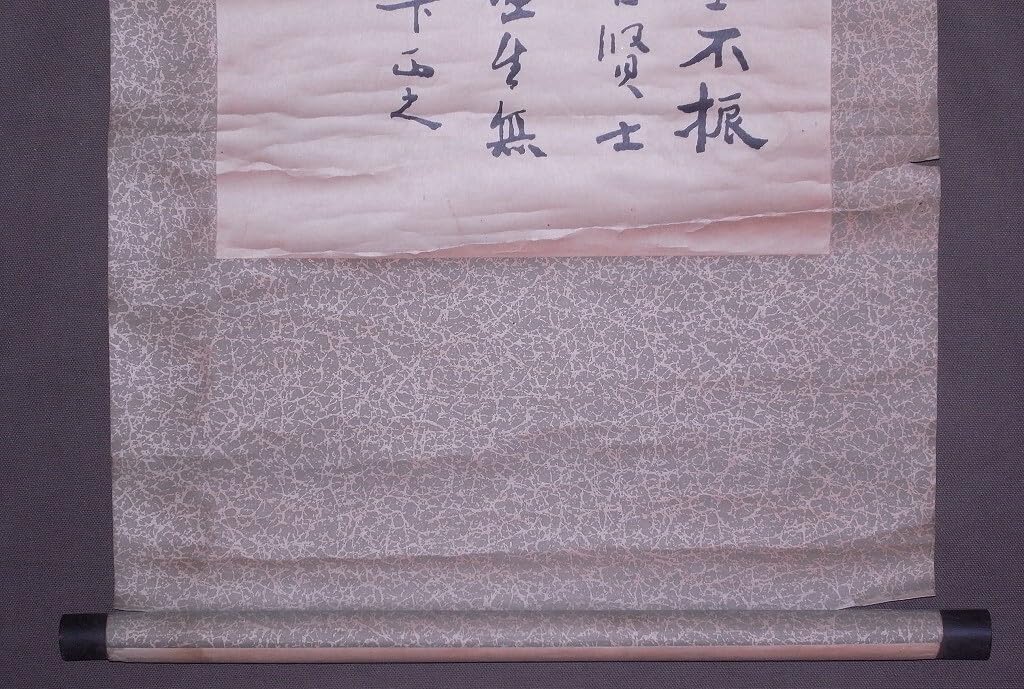 不振
賢士
生無
下正之